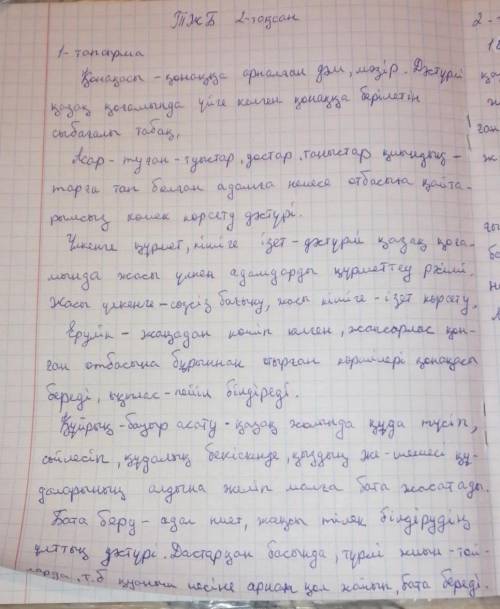 ТЖБ 2-тоқсан
1-тапсырма
Қонақасы - қонаққа арналған дәм, мәзір. Дәстүрлі
қазақ қоғамында үйге келген қонаққа берілетін
сыбағалы табақ.
Асар - туған-туыстар, достар, таныстар қиындық-
тарға тап болған адамға немесе отбасына қайта-
рымсыз көмек көрсету дәстүрі.
Үлкенге құрмет, кішіге ізет - дәстүрлі қазақ қоға-
мында жасы үлкен адамдарды құрметтеу рәсімі.
Жасы үлкенге - сөзсіз бағыну, жасы кішіге - ізет көрсету.
Ерулік - жаңадан көшіп келген, жапсарлас қон-
ған отбасына бұрыннан отырған көршілері қонақасы
береді, ықылас-пейіл білдіреді.
Құйрық-бауыр асату - қазақ жолында құда түсіп,
сөйлесіп, құдалық бекіскенде, қыздың же- құ-
даларының алдына келіп малға бата жасатады.
Бата беру - адал ниет, жақсы тілек білдірудің
ұлттық дәстүрі. Дастарқан басында, түрлі жиын-той-
ларда, т.б қуаныш иесіне арнап қол жайып, бата береді.
2-
1
қа
ж
ған
ж
ғы
ба
на